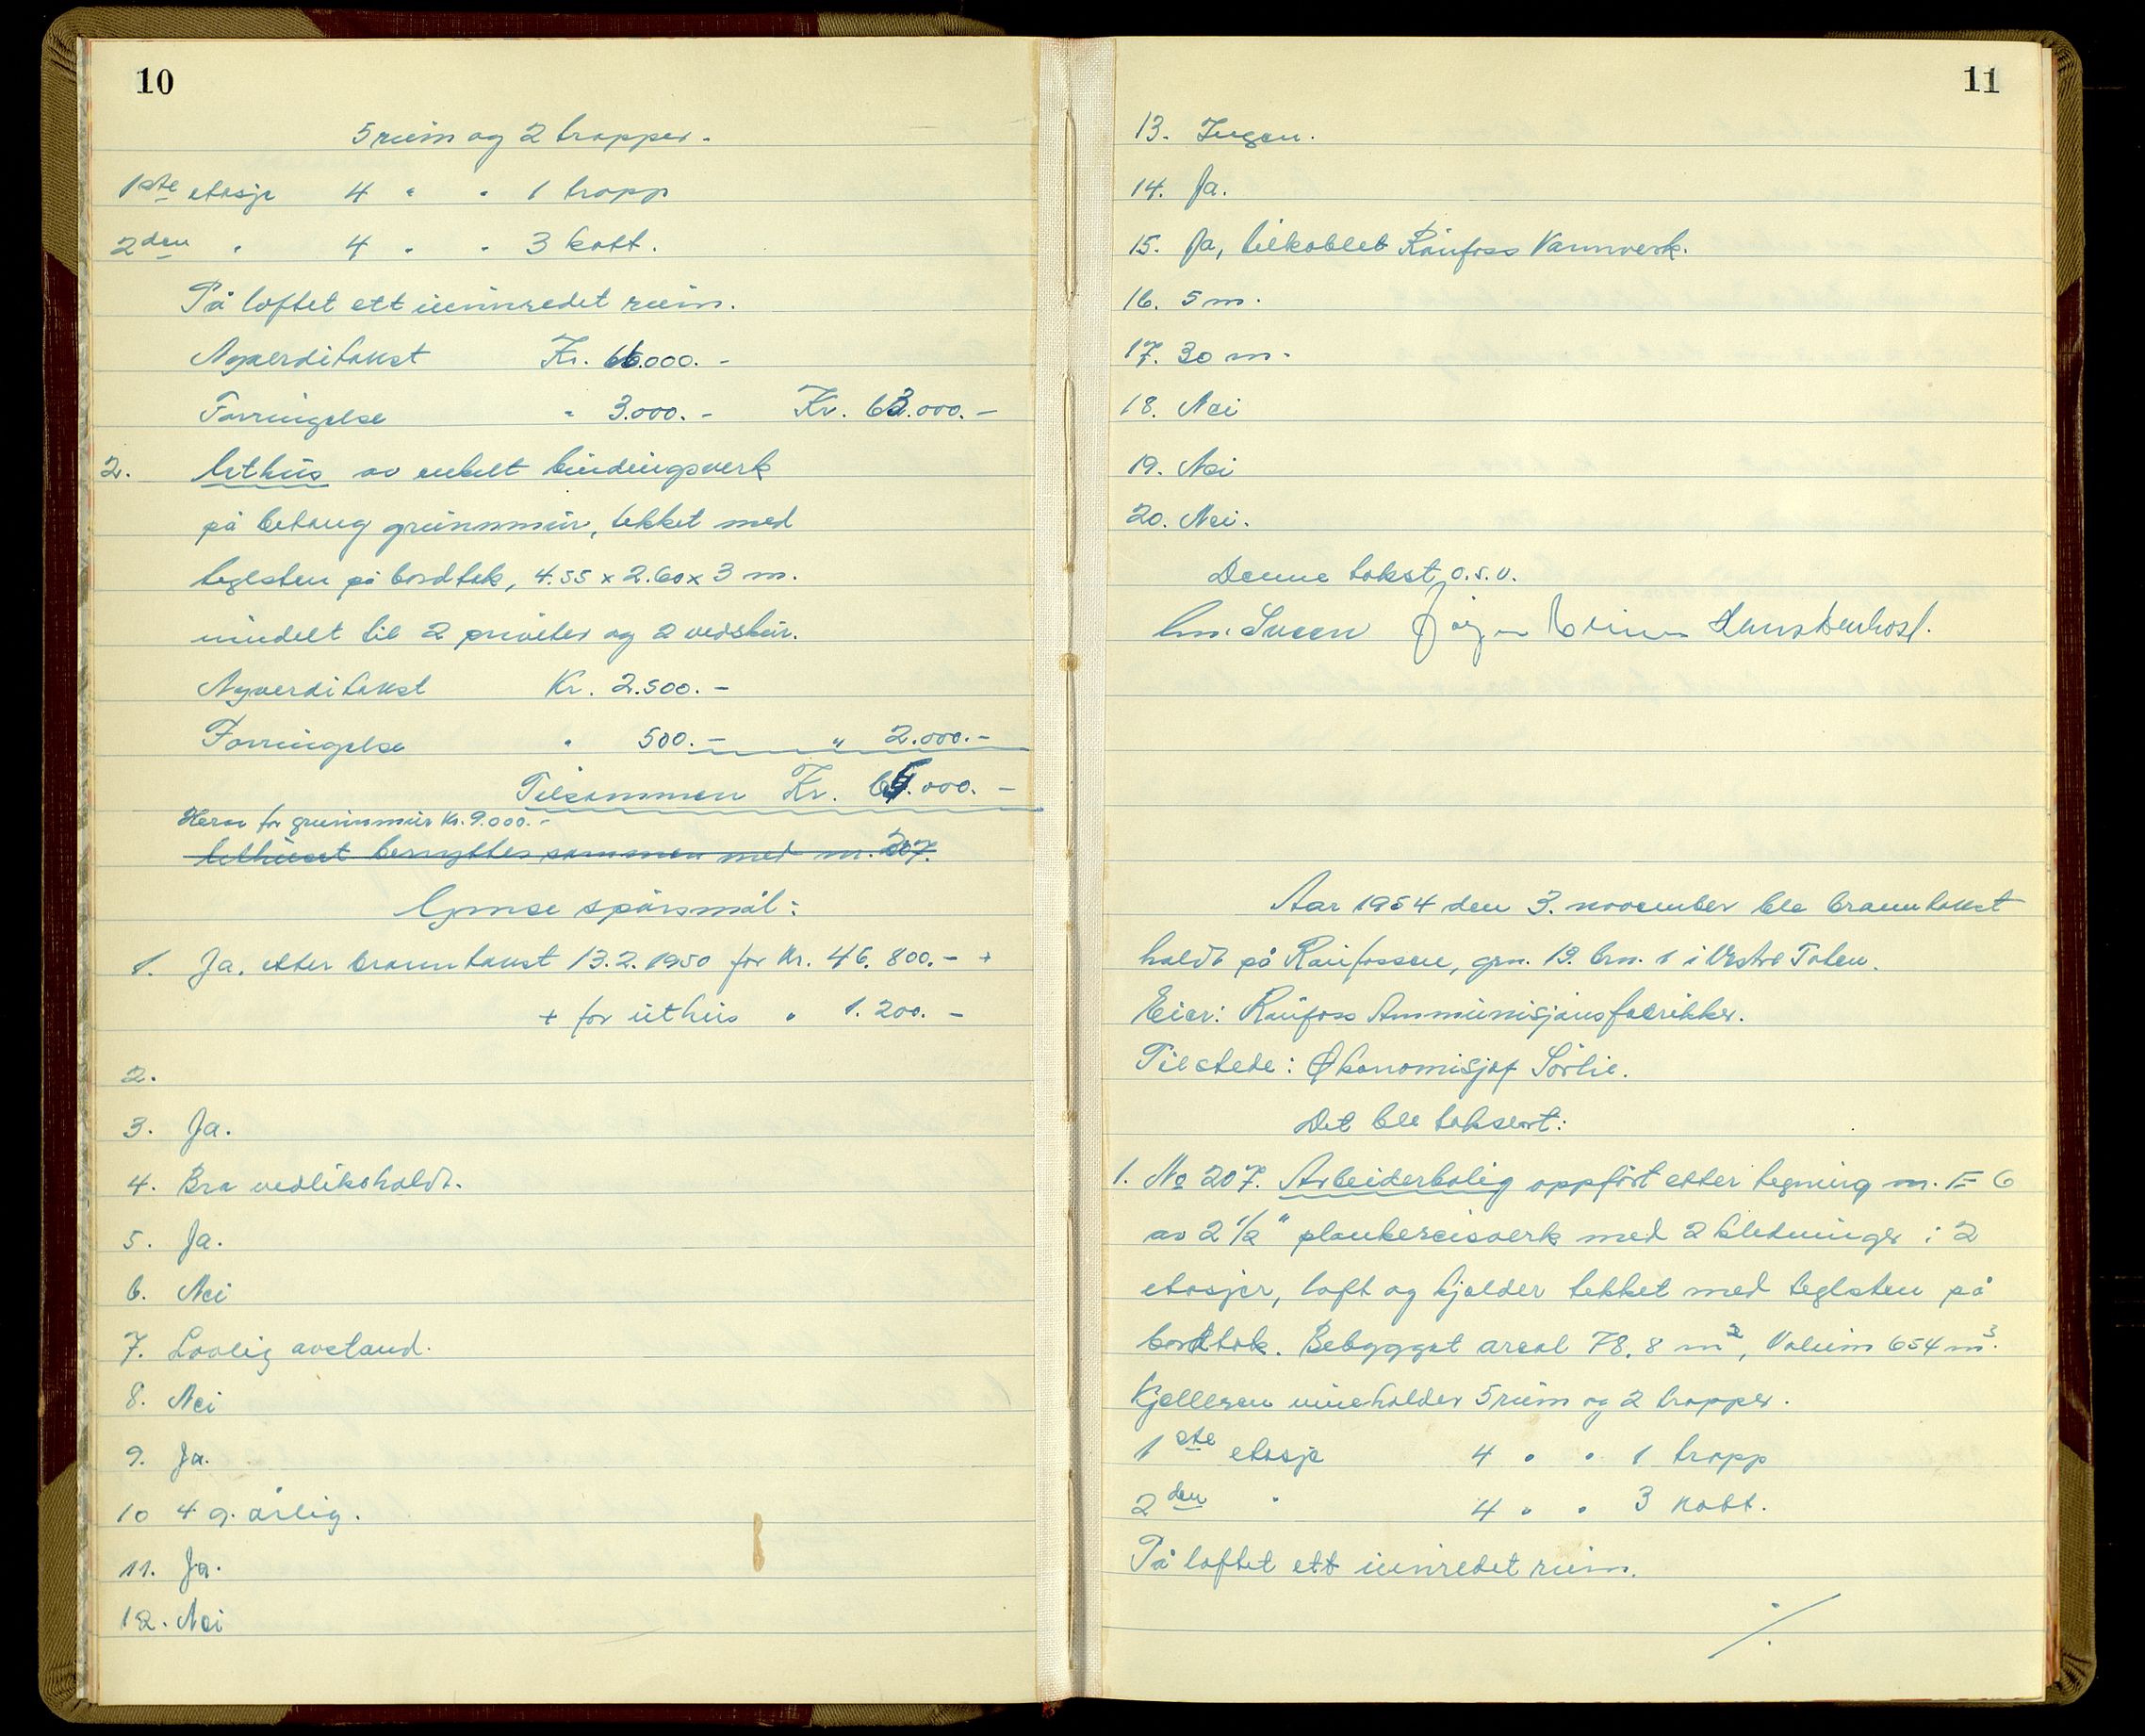 10
5 rúm og 2 trapper.
1ste etasje 4 " " 1 trapp
2den " 4 " " 3 kott.
På loftet ett uinnredet rúm.
Nyverditakst Kr. 66.000.-
Forringelse " 3.000.- Kr. 63.000.-
2. Uthús av enkelt bindingsverk
på betong grúnnmúr, tekket med
teglsten på bordtak, 4.55 x 2.60 x 3 m.
inndelt til 2 priveter og 2 vedskúr.
Nyverditakst Kr. 2.500.-
Forringelse " 500.- " 2.000.-
Tilsammen Kr. 65.000.-
Herav for grunnmúr Kr. 9.000.-
Uthúset benyttes sammen med nr. 207.
Ymse spörsmål:
1. Ja. etter branntakst 13.2.1950 for Kr. 46.800.- +
+ for úthús " 1.200.-
2.
3. Ja.
4. Bra vedlikeholdt.
5. Ja.
6. Nei
7. Lovlig avstand.
8. Nei
9. Ja.
10 4 g. årlig.
11. Ja.
12. Nei
11
13. Ingen.
14. Ja.
15. Ja, tilkoblet Raúfoss Vannverk.
16. 5 m.
17. 30 m.
18. Nei
19. Nei
20. Nei.
Denne takst, o.s.v.
Sveen
Aar 1954 den 3. november ble branntakst
holdt på Raúfossen, grn. 19. brn. 1 i Vestre Toten.
Eier: Raúfoss Ammúnisjonsfabrikker.
Tilstede: Økonomisjef Sörlie.
Det ble taksert:
1. No 207. Arbeiderbolig oppfört etter tegning nr. F 6
av 2 1/2" plankereisverk med 2 kledninger i 2
etasjer, loft og kjelder tekket med teglsten på
bordtak. Bebygget areal 78.8 m2, Volúm 654 m3.
Kjelleren inneholder 5 rúm og 2 trapper.
1ste etasje 4 " " 1 trapp
2den " 4 " " 3 kott.
På loftet ett uinnredet rúm.
./.